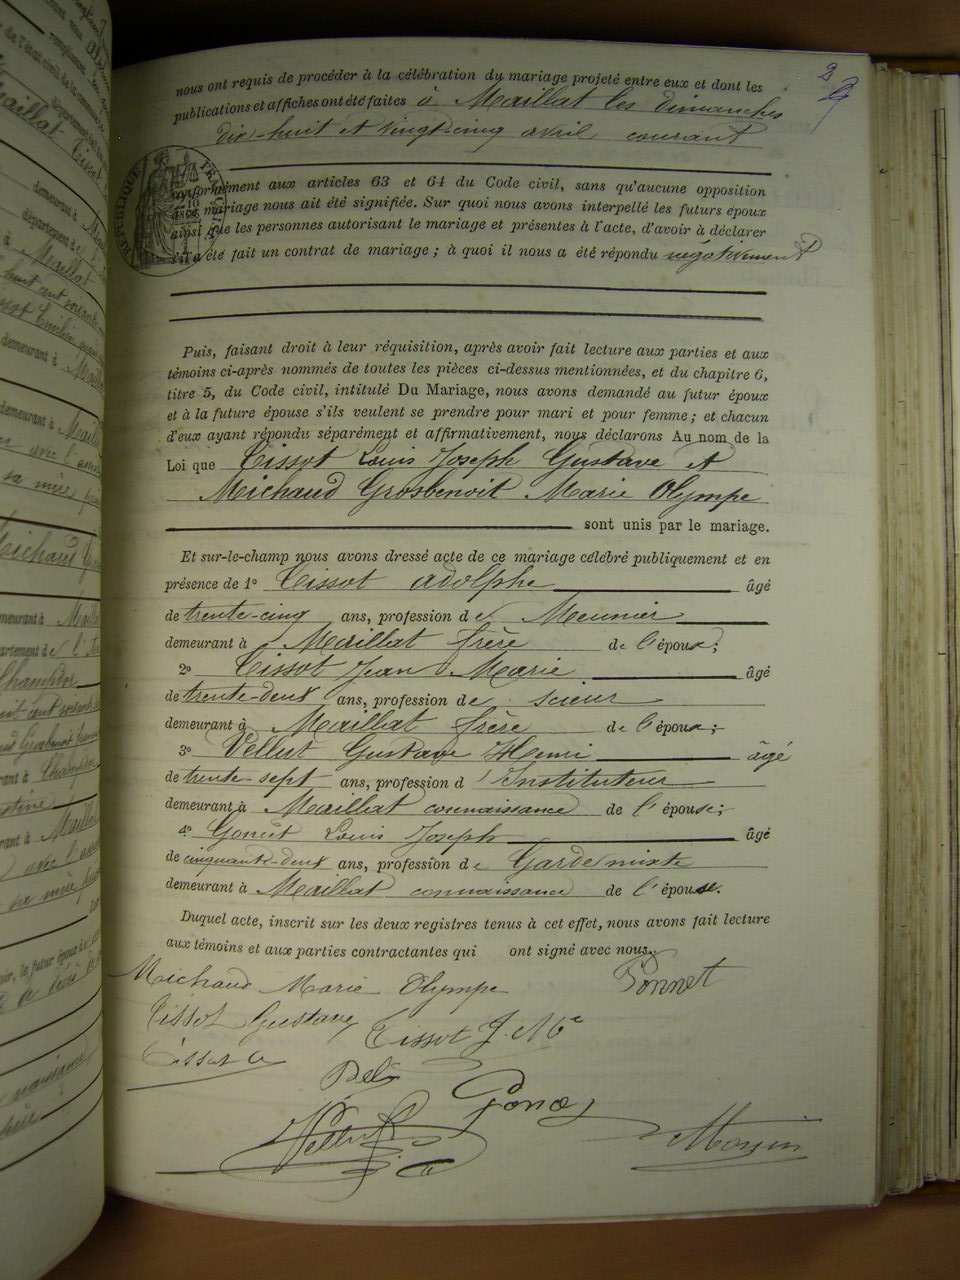 nous ont requis de procéder à la célébration du mariage projeté entre eux et dont les
publications et affiches ont été faites à Maillat les dimanches
dix-huit et vingt-cinq avril courant
RÉPUBLIQUE FRANÇAISE
conformément aux articles 63 et 64 du Code civil, sans qu'aucune opposition
au mariage nous ait été signifiée. Sur quoi nous avons interpellé les futurs époux
ainsi que les personnes autorisant le mariage et présentes à l'acte, d'avoir à déclarer
s'il a été fait un contrat de mariage ; à quoi il nous a été répondu négativement
Puis, faisant droit à leur réquisition, après avoir fait lecture aux parties et aux
témoins ci-après nommés de toutes les pièces ci-dessus mentionnées, et du chapitre 6,
titre 5, du Code civil, intitulé Du Mariage, nous avons demandé au futur époux
et à la future épouse s'ils veulent se prendre pour mari et pour femme ; et chacun
d'eux ayant répondu séparément et affirmativement, nous déclarons Au nom de la
Loi que Tissot Louis Joseph Gustave et
Michaud Grosbenoit Marie Olympe
sont unis par le mariage.
Et sur-le-champ nous avons dressé acte de ce mariage célébré publiquement et en
présence de 1° Tissot Adolphe âgé
de trente-cinq ans, profession de Meunier
demeurant à Maillat frère de l'époux;
2° Tissot Jean Marie âgé
de trente-deux ans, profession de scieur
demeurant à Maillat frère de l'époux;
3° Vellut Gustave Henri âgé
de trente-sept ans, profession d'Instituteur
demeurant à Maillat connaissance de l'épouse;
4° Louis Joseph âgé
de cinquante-deux ans, profession de Garde mixte
demeurant à Maillat connaissance de l'épouse.
Duquel acte, inscrit sur les deux registres tenus à cet effet, nous avons fait lecture
aux témoins et aux parties contractantes qui ont signé avec nous.
Michaud Marie Olympe Ponnet
Tissot Gustave Tissot J. Mie
Tissot A
Vellut